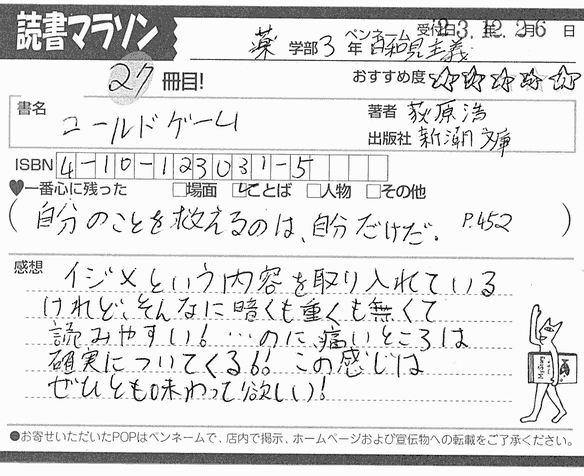 読書マラソン
受付日 23年12月26日
薬学部3年 ペンネーム 日和見主義
27冊目! おすすめ度 ☆☆☆☆☆
書名 コールドゲーム
著者 荻原浩
出版社 新潮文庫
ISBN 4-10-123031-5
♥一番心に残った □場面 ☑ことば □人物 □その他
(自分のことを救えるのは、自分だけだ。 P.452)
感想
イジメという内容を取り入れている
けれど、そんなに暗くも重くも無くて
読みやすい!…のに痛いところは
確実についてくる!!この感じは
ぜひとも味わって欲しい!
●お寄せいただいたPOPはペンネームで、店内で掲示、ホームページおよび宣伝物への転載をご了承ください。